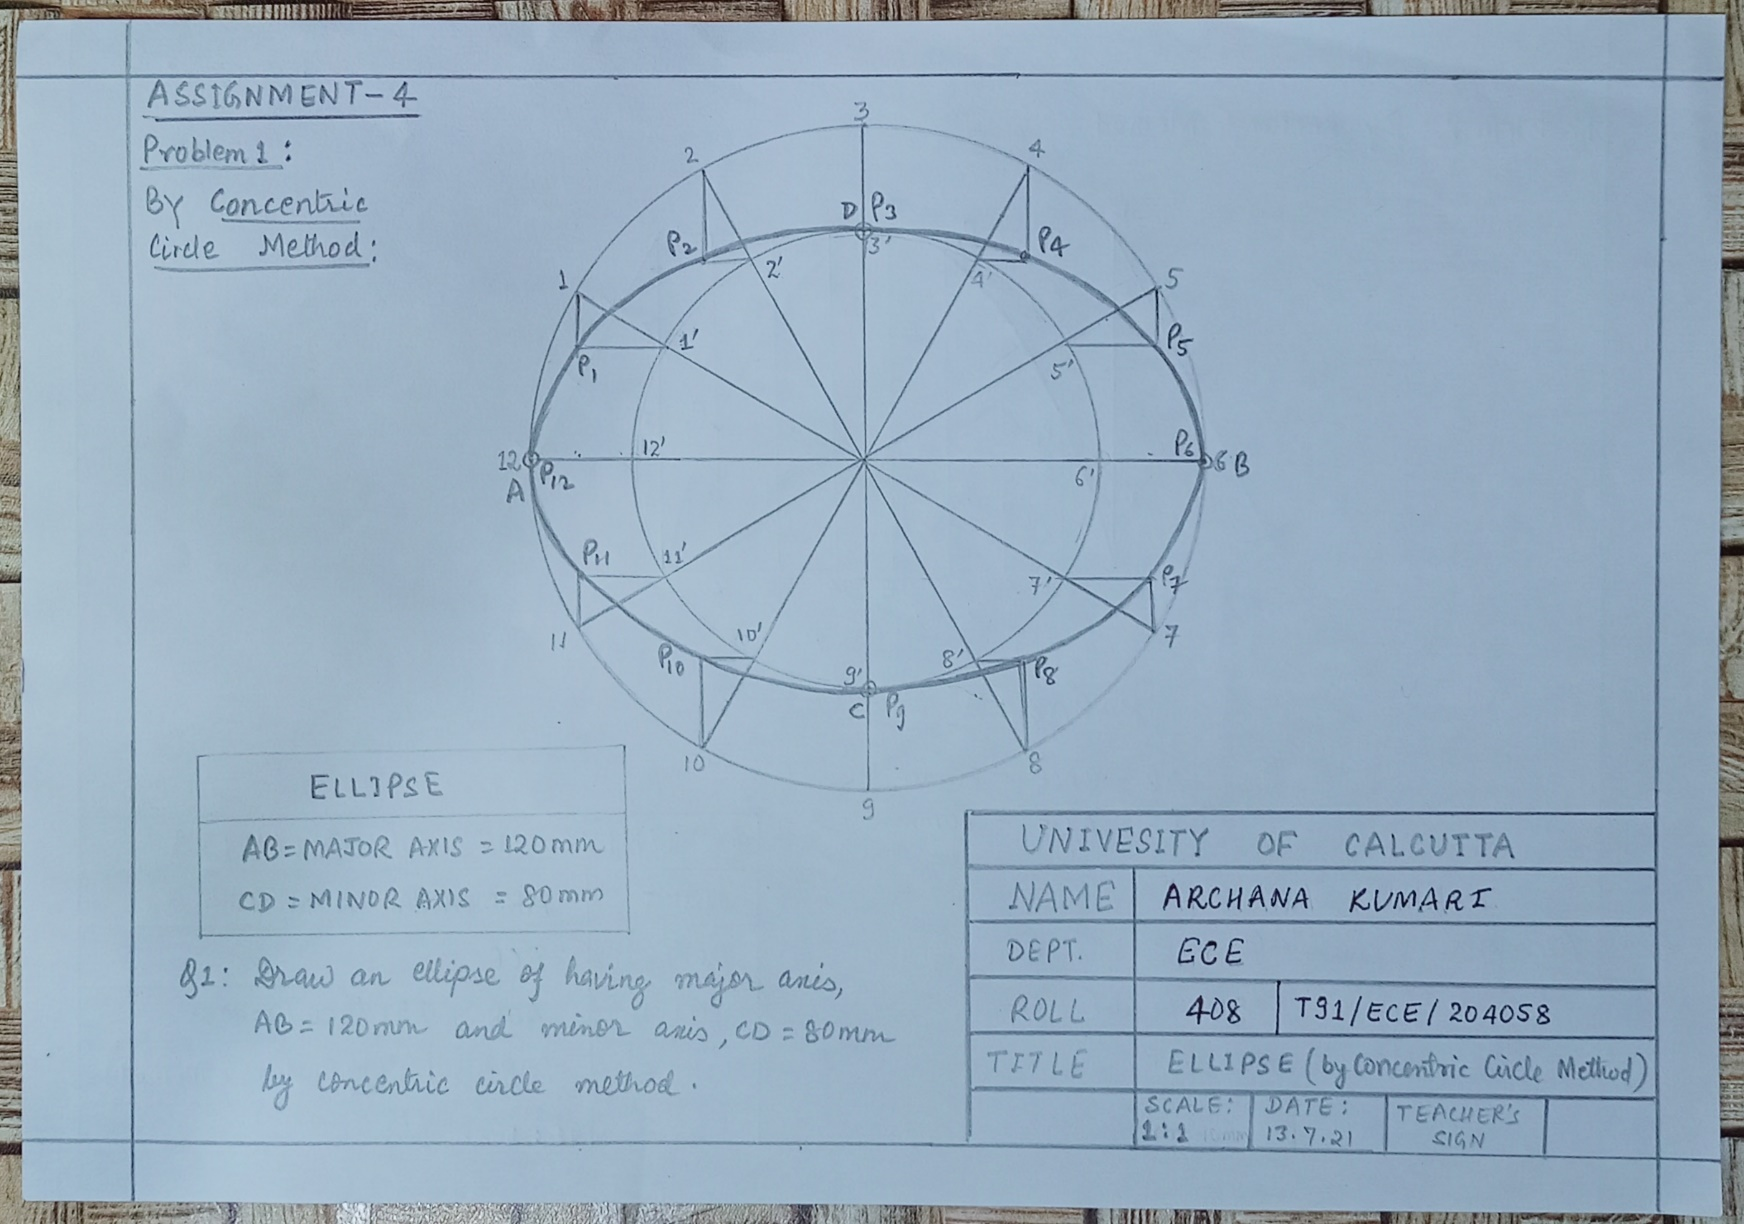 ASSIGNMENT-4
Problem 1:
By Concentric
Circle Method:
3
2
4
D P3
3'
P2
2'
P4
4'
1
5
1'
P1
P5
5'
12
12'
P12
A
P6
6 B
6'
P11
11'
7'
P7
11
7
P10
10'
9'
8'
P8
C P9
10
8
9
ELLIPSE
AB=MAJOR AXIS = 120mm
CD = MINOR AXIS = 80mm
Q1: Draw an ellipse of having major axis,
AB = 120mm and minor axis, CD = 80mm
by concentric circle method.
UNIVESITY OF CALCUTTA
NAME ARCHANA KUMARI
DEPT. ECE
ROLL 408 T91/ECE/204058
TITLE ELLIPSE (by Concentric Circle Method)
SCALE: DATE: TEACHER'S
1:1 13.7.21 SIGN